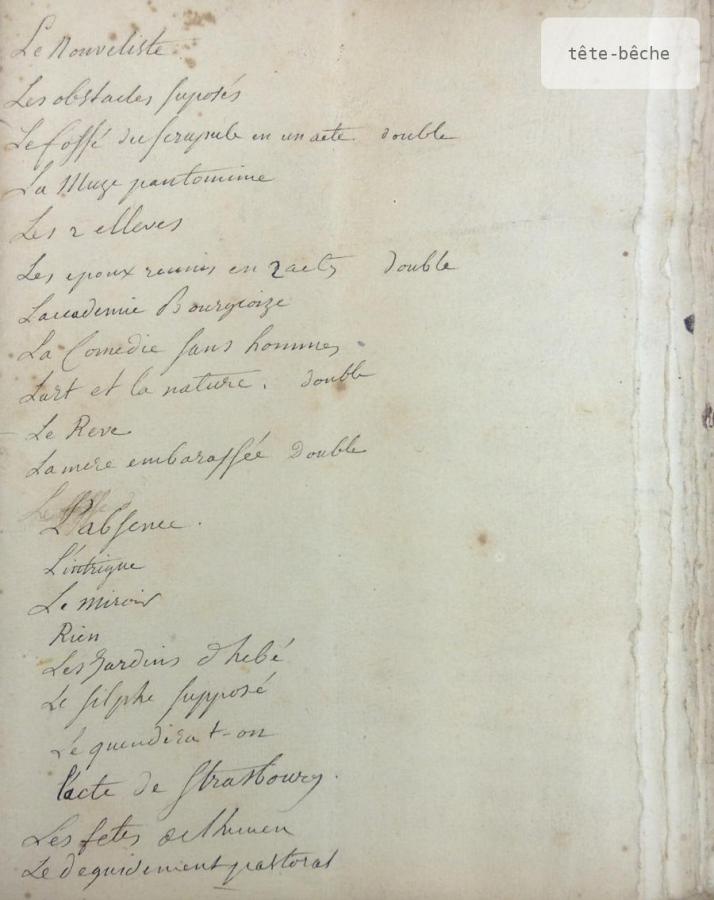 tête-bêche
Le Nouveliste
Les obstacles suposés
Le fossé du scrupule en un acte. double
La Muze pantomime
Les 2 elleves
Les epoux reunis en 2 actes double
Laccademie Bourgeoize
La Comedie sans hommes
Lart et la nature. double
Le Reve
La mere embarassée Double
L'absence.
L'intrigue
Le miroir
Rien
Les Jardins d'hebé
Le silphe supposé
Le quendira t-on
l'acte de Strasbourg.
Les fetes de lhimen
Le deguisement pastoral